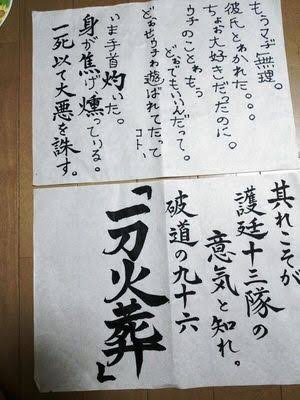 もうマヂ無理。
彼氏とゎかれた。。。
ちょお大好きだったのに。
ウチのことゎもぅ
どぉでもいいんだって。
どぉせウチゎ遊ばれてたって
コト、
いま手首灼いた。
身が焦げ、燻っている。
一死以て大悪を誅す。
其れこそが
護廷十三隊の
意気と知れ。
破道の九十六
「一刀火葬」